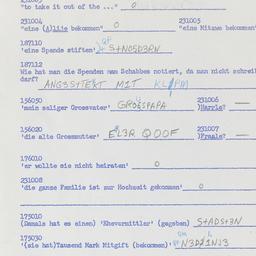 "to take it out of the ..." 0
231004 231005
"eine (A)lite bekommen" 0 "eine Mitzne bekommen"
187110
'eine Spende stiften'
187112
Wie hat man die Spenden am Schabbes notiert, da man nicht schrei
darf?
ANGSSTEXT MIT
156030 231006
'mein seliger Grossvater' GROESPAPA )Harple?
156020 231007
'die alte Grossmutter' )Fraale?
176010
'er wollte sie nicht heiraten' 0
231008
'die ganze Familie ist zur Hochzeit gekommen' 0
175010
(Damals hat es einen) 'Ehevermittler' (gegeben) S+ADS+3N
175030
'(sie hat)Tausend Mark Mitgift (bekommen)'